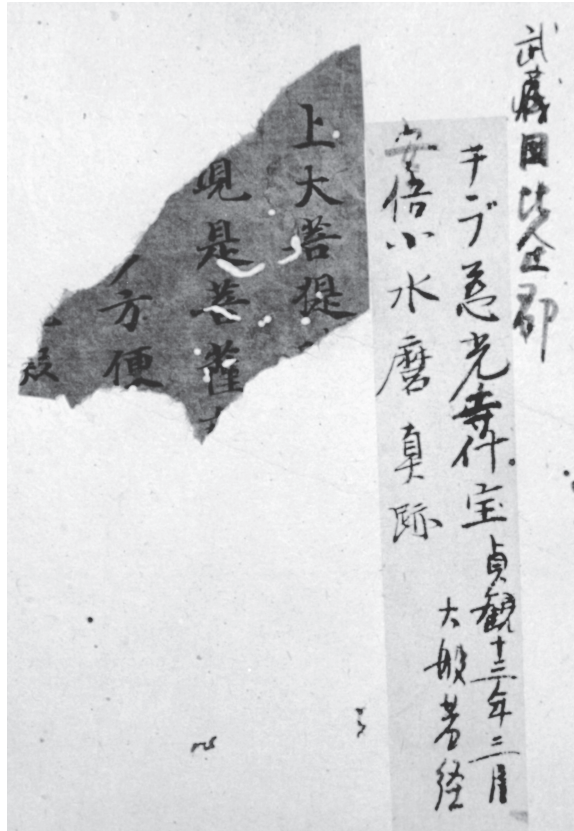 武蔵國比企郡
チブ慈光寺什宝 貞観十三年三月
大般若経
安倍小水麿真跡
上大菩提
現是菩薩
方便